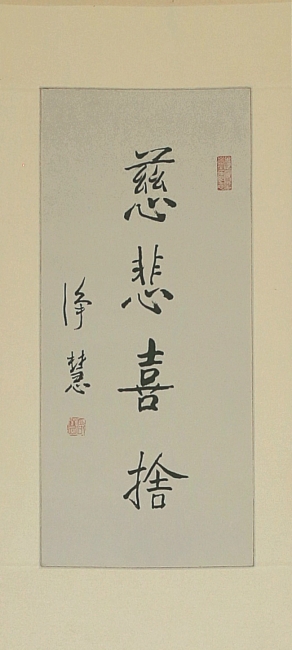 慈悲喜捨
淨慧